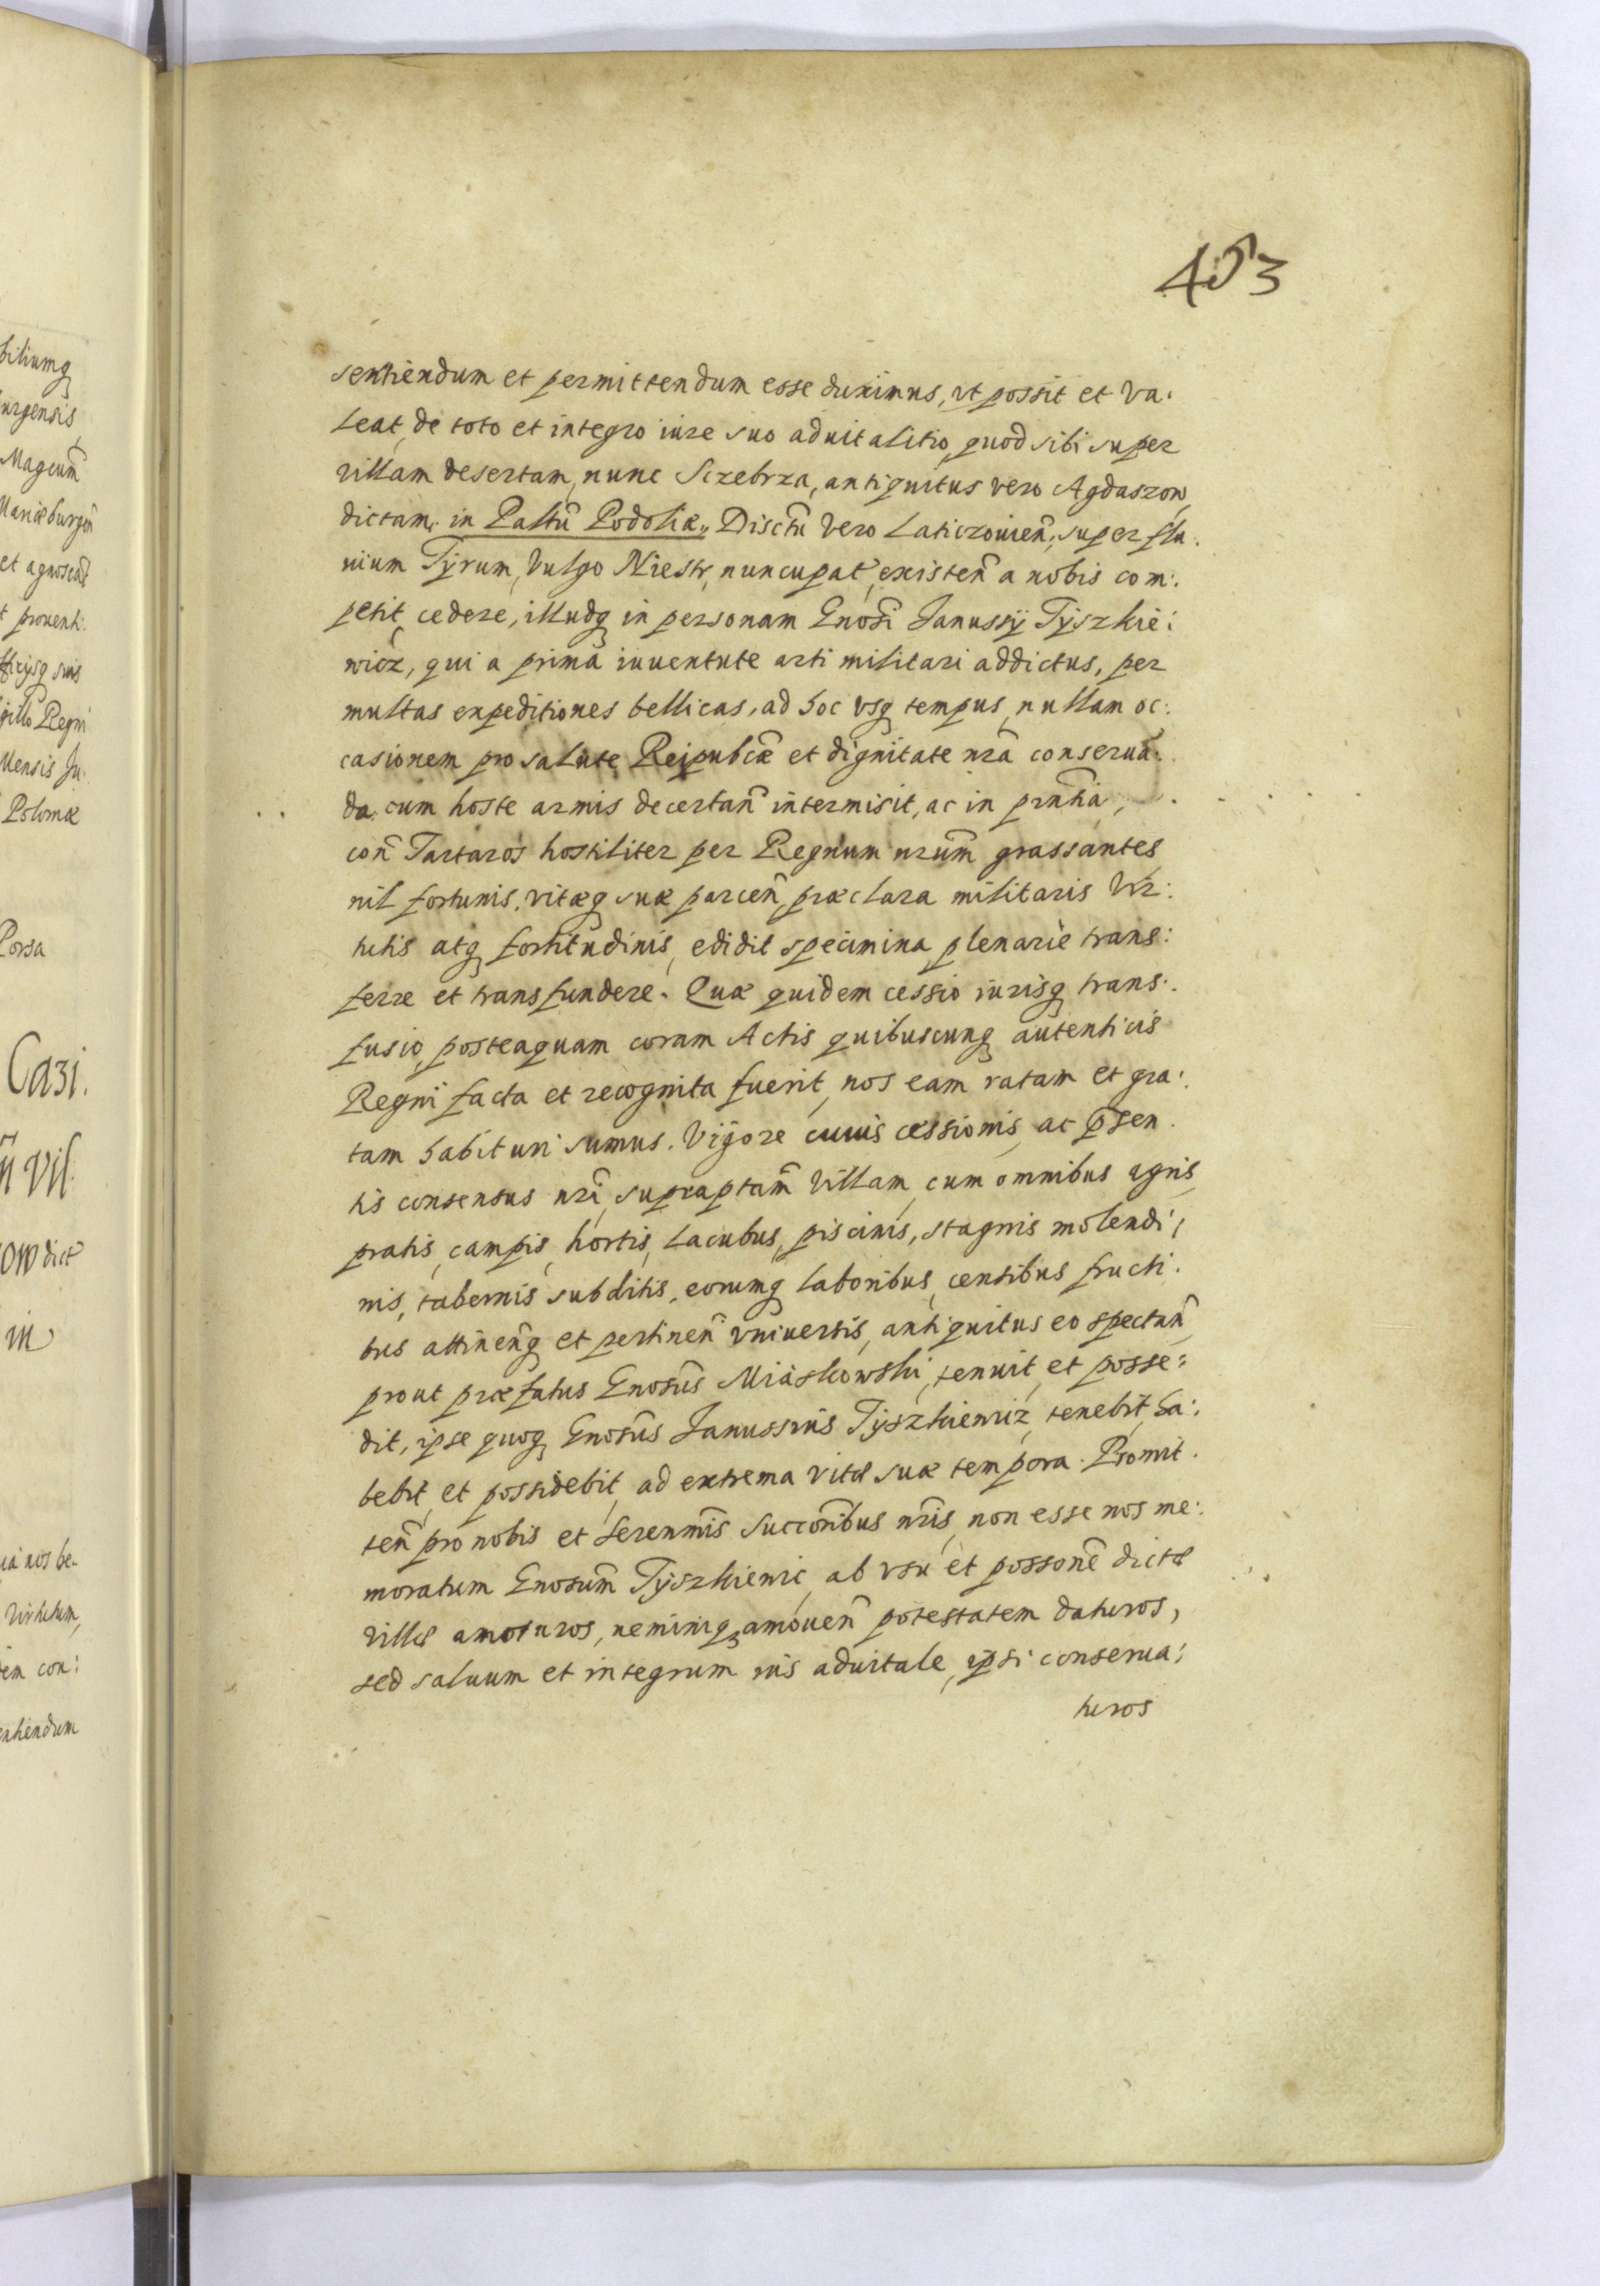 453
sentiendum et permittendum esse duximus, ut possit et va.
leat, de toto et integro iure suo aduitalitio, quod sibi super
villam desertam, nunc Sczebrza, antiquitus vero Agdaszow,
dictam, in Paltũ Podoliæ, Disctũ vero Laticzouieñ, super flu.
uium Tyrum, vulgo Niestr, nuncupat, existeñ a nobis com:
petit, cedere, illudq in personam Gnosi Janussÿ Tÿszkie:
wicz, qui a prima iuuentute arti militari addictus, per
multas expeditiones bellicas, ad hoc vsq tempus, nullam oc:
casionem pro salute Reipubcæ et dignitate nrã conserua:
da, cum hoste armis decertañ intermisit, ac in prñtia,
coñ Tartaros hostiliter per Regnum nrũm grassantes
nil fortunis, vitæq suæ parceñ, præclara militaris Vir:
tutis atq fortitudinis, edidit specimina, plenarie trans:
ferre et transfundere. Quæ quidem cessio iurisq trans:
fusio, posteaquam coram Actis quibuscunq autenticis
Regni facta et recognita fuerit, nos eam ratam et gra:
tam habituri sumus. Vigore cuius cessionis, ac p̃sen.
tis consensus nrĩ, supraptam̃ Villam, cum omnibus agris,
pratis, campis, hortis, lacubus, piscinis, stagnis molendi,
nis, tabernis subditis, eorumq laboribus, censibus fructi.
bus attineñq et pertineñ vniuersis, antiquitus eo spectañ,
prout præfatus Gnosũs Miaskowski, tenuit, et posse:
dit, ipse quoq Gnosũs Janussius Tÿszkiewiz, tenebit, ha:
bebit, et possidebit, ad extrema vitæ suæ tempora. Promit.
teñ pro nobis et Serenmĩs Succoribus nrĩs, non esse nos me:
moratum Gnosum̃ Tÿszkiewic, ab vsu et possonẽ dictæ
villæ amoturos, neminiq amoueñ potestatem daturos,
sed saluum et integrum ius aduitale, ipsi conserua:
turos